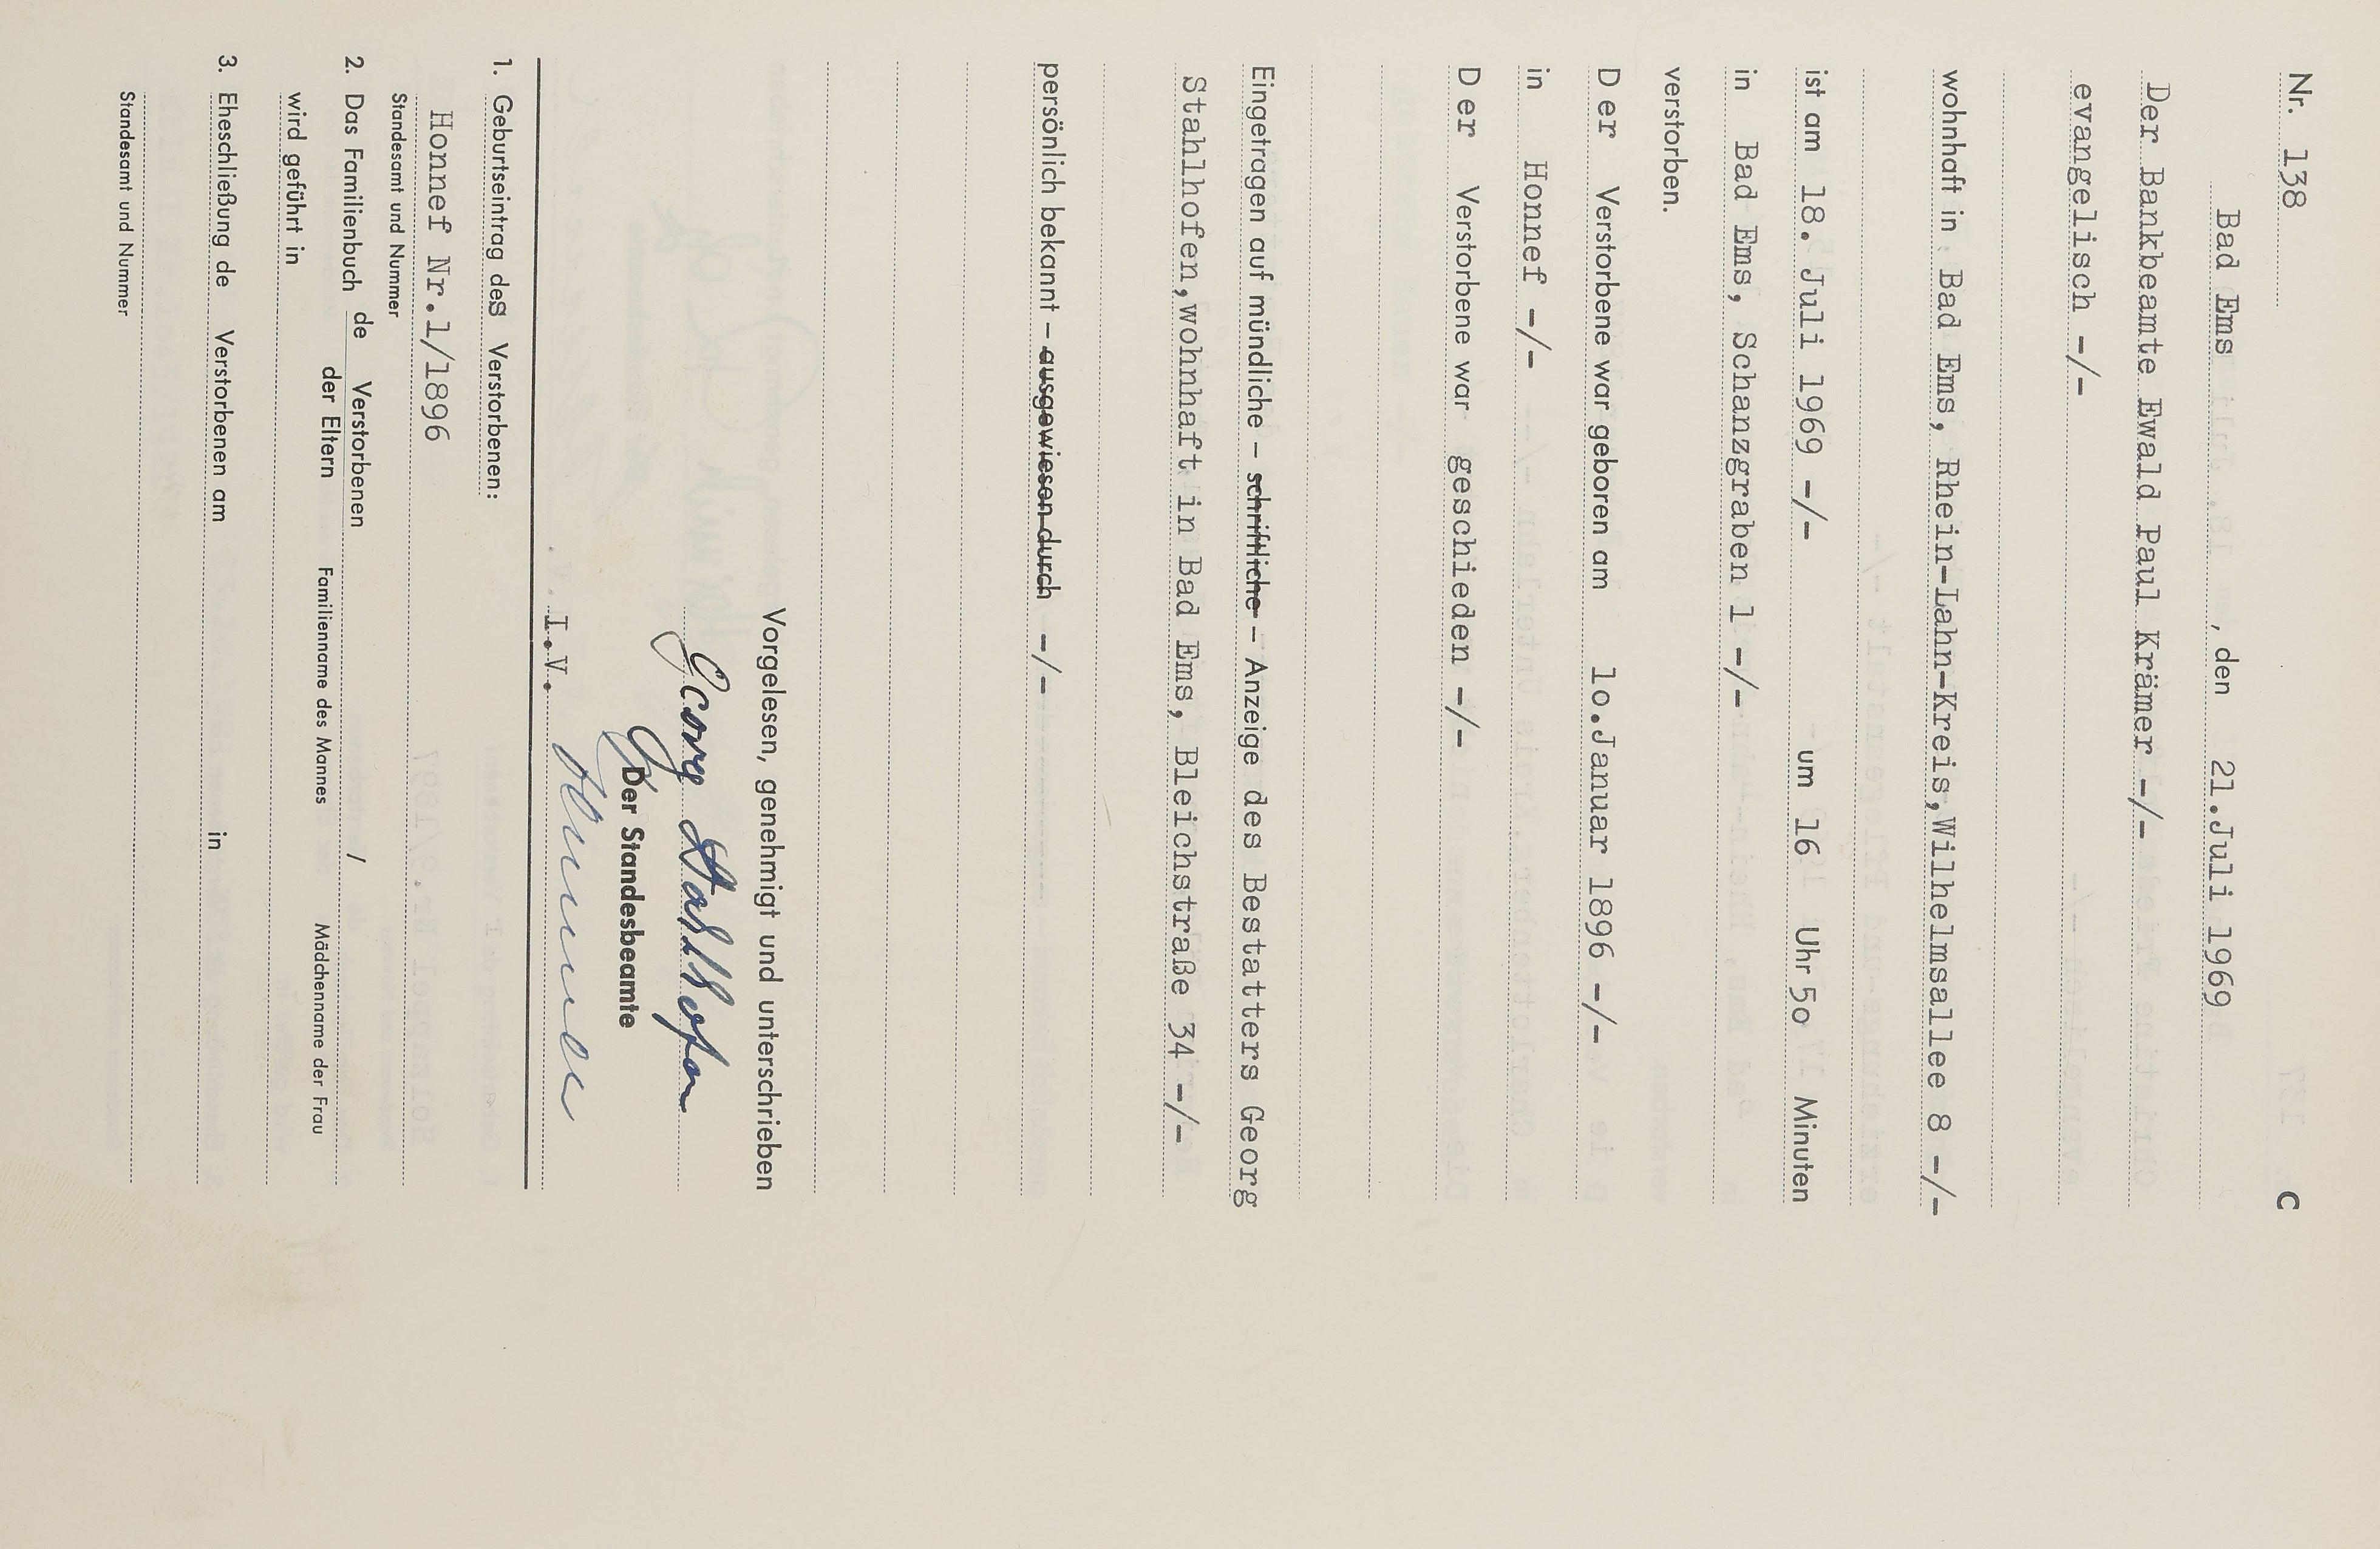 Nr. 138
C
Bad Ems, den 21.Juli 1969
Der Bankbeamte Ewald Paul Krämer -/-
evangelisch -/-
wohnhaft in Bad Ems, Rhein-Lahn-Kreis,Wilhelmsallee 8 -/-
ist am 18. Juli 1969 -/- um 16 Uhr 5o Minuten
in Bad Ems, Schanzgraben 1 -/-
verstorben.
D er Verstorbene war geboren am 1o.Januar 1896 -/-
in Honnef -/-
D er Verstorbene war geschieden -/-
Eingetragen auf mündliche – schriftliche – Anzeige des Bestatters Georg
Stahlhofen,wohnhaft in Bad Ems, Bleichstraße 34 -/-
persönlich bekannt – ausgewiesen durch -/-
Vorgelesen, genehmigt und unterschrieben
Georg Stahlhofen
Der Standesbeamte
I.V.
1. Geburtseintrag des Verstorbenen:
Honnef Nr.1/1896
Standesamt und Nummer
2. Das Familienbuch de Verstorbenen /
der Eltern Familienname des Mannes Mädchenname der Frau
wird geführt in
3. Eheschließung de Verstorbenen am in
Standesamt und Nummer